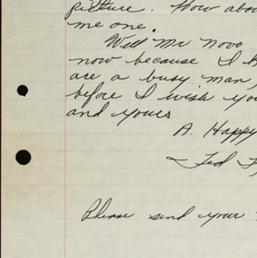 picture. How abou
me one.
Well Mr Novo
now because I k
are a busy man,
before I wish you
and yours
A. Happy
Ted
Please send your